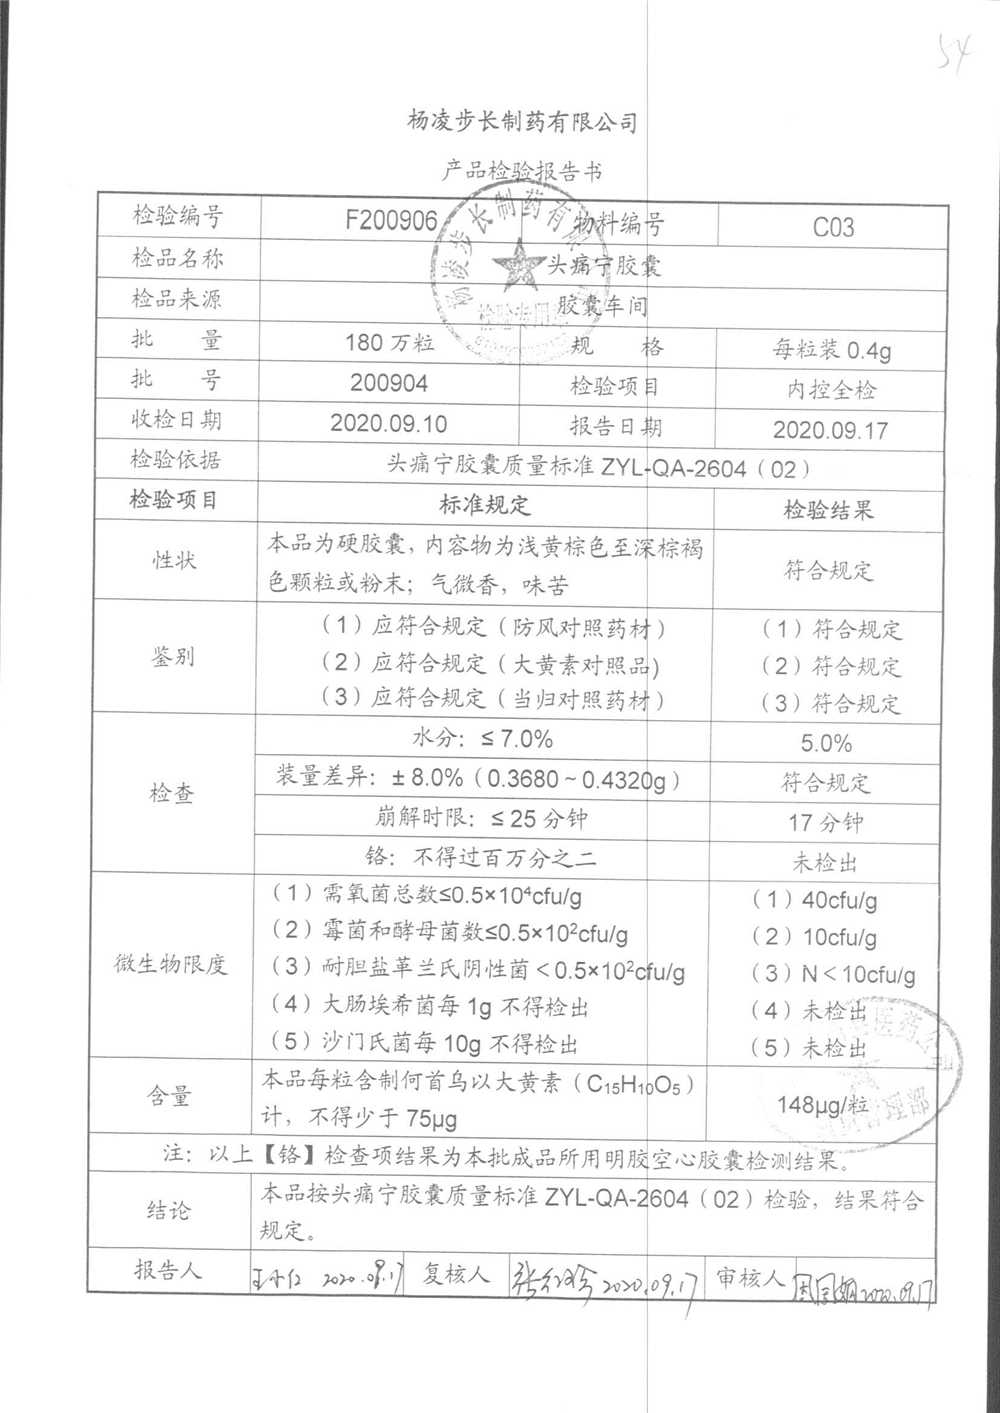 54
杨凌步长制药有限公司
产品检验报告书
检验编号 F200906 物料编号 C03
检品名称 头痛宁胶囊
检品来源 胶囊车间
批 量 180万粒 规 格 每粒装0.4g
批 号 200904 检验项目 内控全检
收检日期 2020.09.10 报告日期 2020.09.17
检验依据 头痛宁胶囊质量标准ZYL-QA-2604（02）
检验项目 标准规定 检验结果
性状 本品为硬胶囊，内容物为浅黄棕色至深棕褐
色颗粒或粉末；气微香，味苦 符合规定
鉴别 （1）应符合规定（防风对照药材） （1）符合规定
（2）应符合规定（大黄素对照品) （2）符合规定
（3）应符合规定（当归对照药材） （3）符合规定
检查 水分：≤7.0% 5.0%
装量差异：±8.0%（0.3680～0.4320g） 符合规定
崩解时限：≤25分钟 17分钟
铬：不得过百万分之二 未检出
微生物限度 （1）需氧菌总数≤0.5×10⁴cfu/g （1）40cfu/g
（2）霉菌和酵母菌数≤0.5×10²cfu/g （2）10cfu/g
（3）耐胆盐革兰氏阴性菌＜0.5×10²cfu/g （3）N＜10cfu/g
（4）大肠埃希菌每1g不得检出 （4）未检出
（5）沙门氏菌每10g不得检出 （5）未检出
含量 本品每粒含制何首乌以大黄素（C₁₅H₁₀O₅）
计，不得少于75μg 148μg/粒
注：以上【铬】检查项结果为本批成品所用明胶空心胶囊检测结果。
结论 本品按头痛宁胶囊质量标准ZYL-QA-2604（02）检验，结果符合
规定。
报告人 2020.09.17 复核人 2020.09.17 审核人 2020.09.17
杨凌步长制药有
检验专用
医药公司